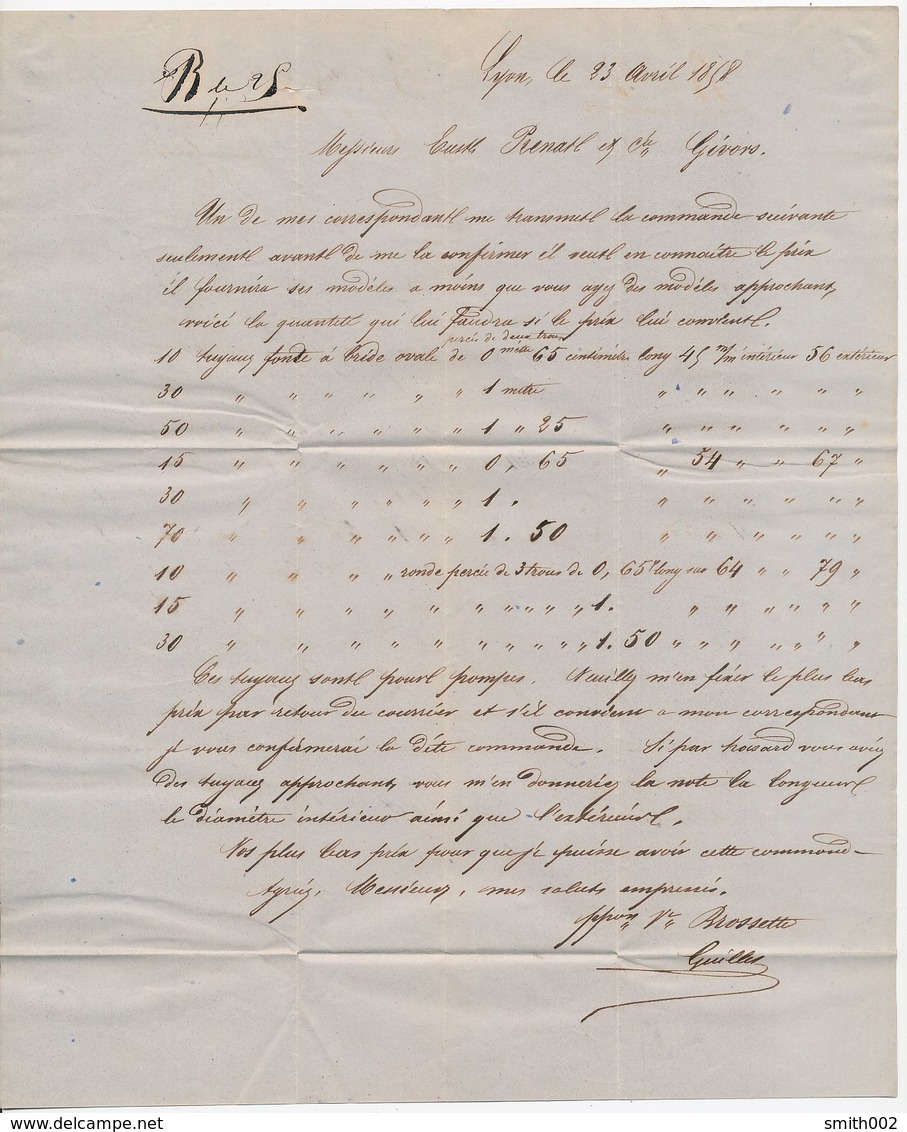 R le 25
Lyon, le 23 Avril 1858
Messieurs Eustl Prenatl et Cie Givors.
Un de mes correspondantl me transmetl la commande suivante
seulementl avantl de me la confirmer il veutl en connaître le prix
il fournira ses modèles a moins que vous ayez des modèles approchant,
voici la quantité qui lui faudra si le prix lui convientl.
percée de deux trous
10 tuyaux fonte à bride ovale de 0 mètre 65 centimètre long 45 m/m intérieur 56 extérieur
30 " " " " " " 1 mètre " " " " " "
50 " " " " " " 1 " 25 " " " " " "
15 " " " " " " 0, 65 " 54 " " 67 "
30 " " " " " " 1 . " " " " " "
70 " " " " " " 1. 50 " " " " " "
10 " " " " ronde percée de 3 trous de 0, 65 long sur 64 " " 79 "
15 " " " " " " " " " " " 1. " " " " " "
30 " " " " " " " " " " " 1. 50 " " " " " " " "
Ces tuyaux sontl pourl pompes. Veuillez m'en fixer le plus bas
prix par retour du courrier et s'il convient a mon correspondant
je vous confirmerai la dite commande. Si par hassard vous aviez
des tuyaux approchant, vous m'en donneriez la note la longueurl
le diamètre intérieur ainsi que l'extérieurl.
Vos plus bas prix pour que je puisse avoir cette command-
Agréez, Messieurs, mes saluts empressés.
ppon Ve Brossette
Guilles
smith002